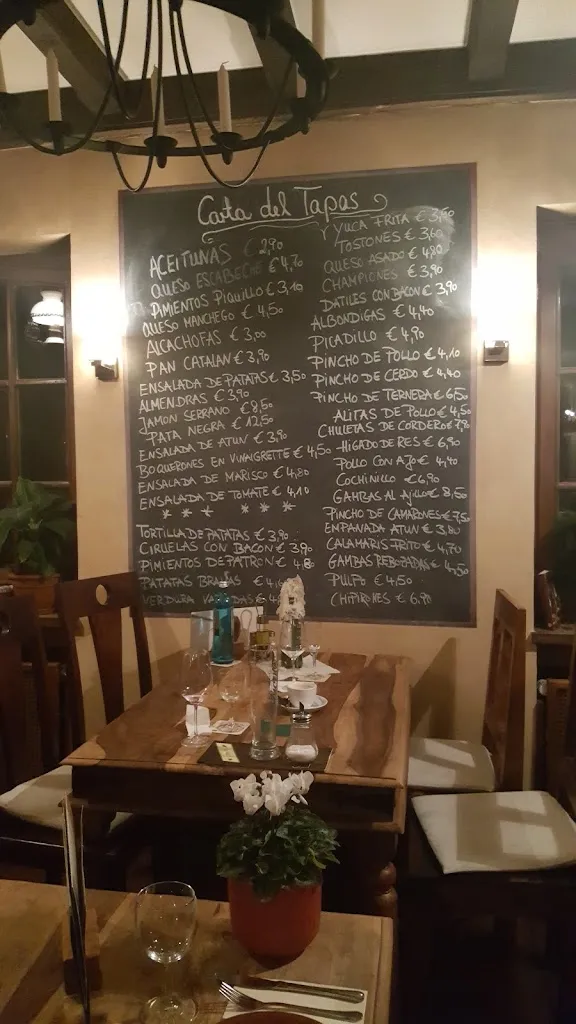 Carta del Tapas
ACEITUNAS € 2,90
QUESO ESCABECHE € 4,70
PIMIENTOS PIQUILLO € 3,10
QUESO MANCHEGO € 4,50
ALCACHOFAS € 3,00
PAN CATALAN € 3,90
ENSALADA DE PATATAS € 3,50
ALMENDRAS € 3,90
JAMON SERRANO € 8,50
PATA NEGRA € 12,50
ENSALADA DE ATUN € 3,90
BOQUERONES EN VINAIGRETTE € 4,50
ENSALADA DE MARISCO € 4,80
ENSALADA DE TOMATE € 4,10
* * * * * *
TORTILLA DE PATATAS € 3,90
CIRUELAS CON BACON € 3,90
PIMIENTOS DE PATRON € 4,80
PATATAS BRAVAS €
VERDURA
YUCA FRITA € 3,50
TOSTONES € 3,60
QUESO ASADO € 4,80
CHAMPIONES € 3,90
DATILES CON BACON € 3,90
ALBONDIGAS € 4,40
PICADILLO € 4,90
PINCHO DE POLLO € 4,10
PINCHO DE CERDO € 4,40
PINCHO DE TERNERA € 6,50
ALITAS DE POLLO € 4,50
CHULETAS DE CORDERO € 7,90
HIGADO DE RES € 6,90
POLLO CON AJO € 4,40
COCHINILLO € 6,90
GAMBAS AL AJILLO € 8,50
PINCHO DE CAMARONES € 7,50
EMPANADA ATUN € 3,80
CALAMARIS FRITO € 4,70
GAMBAS REBOZADAS € 4,50
PULPO € 4,50
CHIPIRONES € 6,90